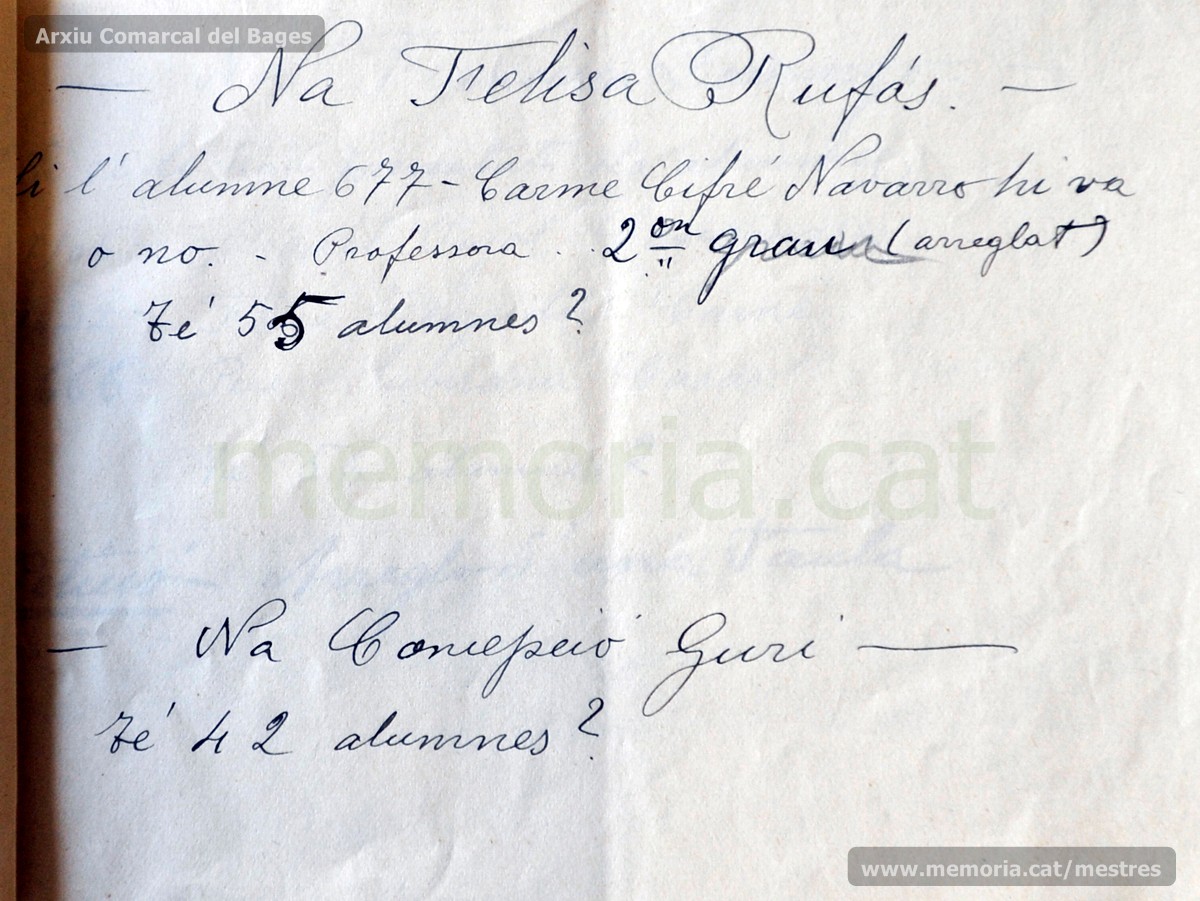 Arxiu Comarcal del Bages
— Na Felisa Rufás. —
li l'alumne 677 - Carme Cifré Navarro hi va
o no. - Professora . . 2on grau (arreglat)
Té 55 alumnes?
memoria.cat
— Na Concepció Guri —
té 42 alumnes?
www.memoria.cat/mestres